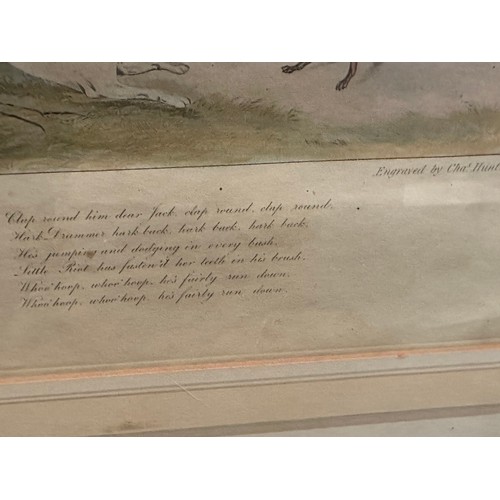 Engraved by Chaˢ Hunt
Clap round him dear Jack, clap round, clap round.
Hark Drummer hark back, hark back, hark back.
He's jumping and dodging in every bush.
Little Riot has fasten'd her teeth in his brush.
Whoo'hoop, whoo'hoop, he's fairly run down.
Whoo'hoop, whoo'hoop, he's fairly run down.